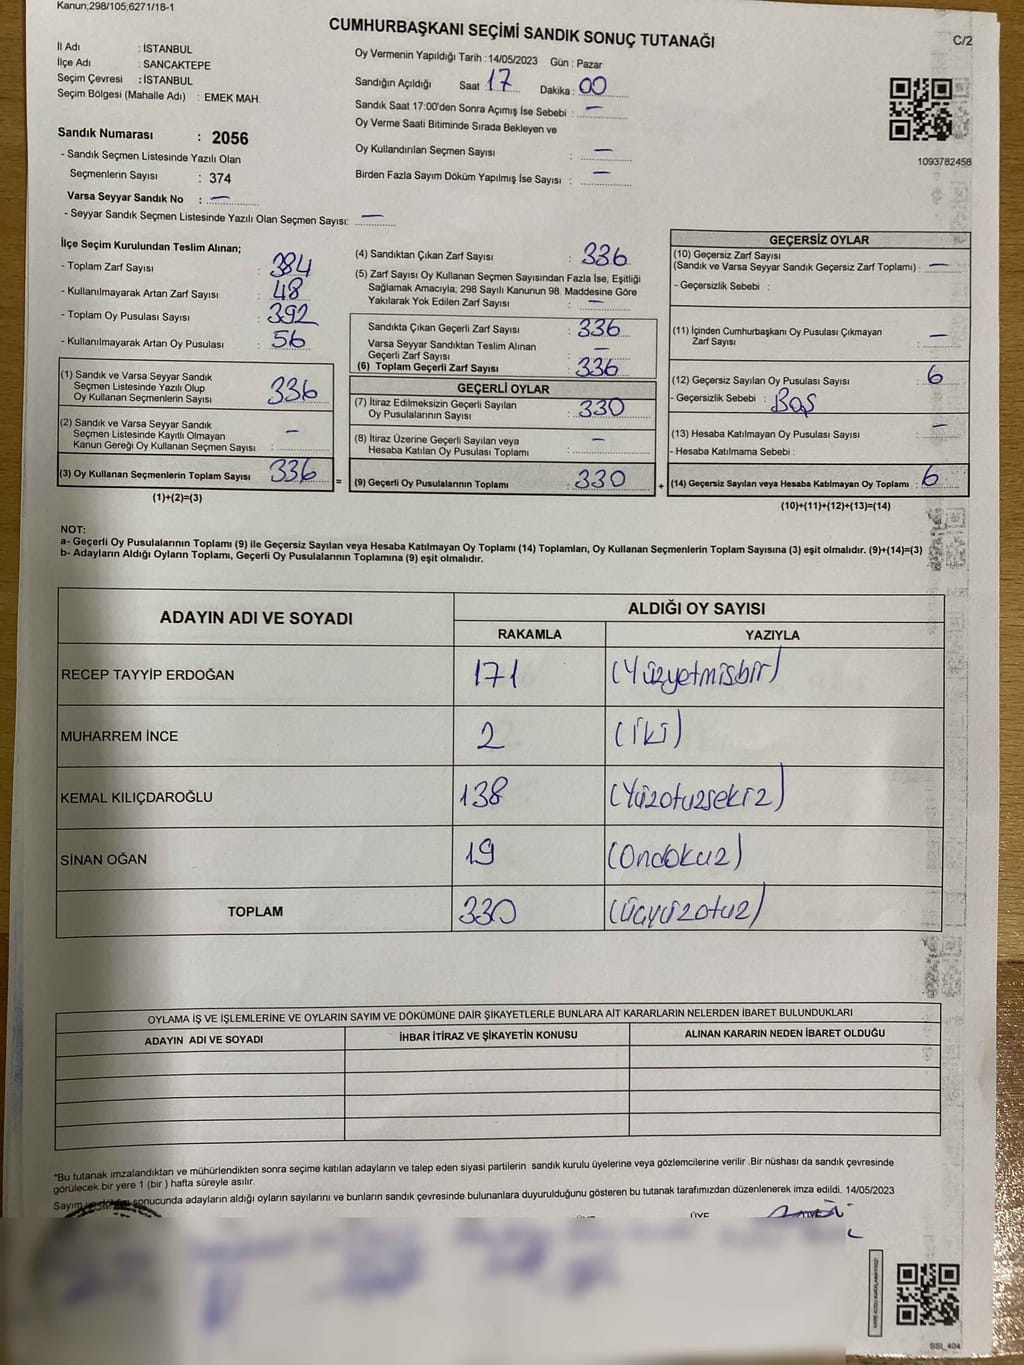 Kanun;298/105;6271/18-1
CUMHURBAŞKANI SEÇİMİ SANDIK SONUÇ TUTANAĞI
C/2
İl Adı : İSTANBUL
İlçe Adı : SANCAKTEPE
Seçim Çevresi : İSTANBUL
Seçim Bölgesi (Mahalle Adı) : EMEK MAH.
Sandık Numarası : 2056
- Sandık Seçmen Listesinde Yazılı Olan
Seçmenlerin Sayısı : 374
Varsa Seyyar Sandık No : —
- Seyyar Sandık Seçmen Listesinde Yazılı Olan Seçmen Sayısı: —
Oy Vermenin Yapıldığı Tarih :14/05/2023 Gün : Pazar
Sandığın Açıldığı Saat : 17 Dakika : 00
Sandık Saat 17:00'den Sonra Açımış İse Sebebi : —
Oy Verme Saati Bitiminde Sırada Bekleyen ve
Oy Kullandırılan Seçmen Sayısı : —
Birden Fazla Sayım Döküm Yapılmış İse Sayısı : —
1093782458
İlçe Seçim Kurulundan Teslim Alınan;
- Toplam Zarf Sayısı : 384
- Kullanılmayarak Artan Zarf Sayısı : 48
- Toplam Oy Pusulası Sayısı : 392
- Kullanılmayarak Artan Oy Pusulası : 56
(1) Sandık ve Varsa Seyyar Sandık
Seçmen Listesinde Yazılı Olup
Oy Kullanan Seçmenlerin Sayısı : 336
(2) Sandık ve Varsa Seyyar Sandık
Seçmen Listesinde Kayıtlı Olmayan
Kanun Gereği Oy Kullanan Seçmen Sayısı : —
(3) Oy Kullanan Seçmenlerin Toplam Sayısı : 336
(1)+(2)=(3)
=
(4) Sandıktan Çıkan Zarf Sayısı : 336
(5) Zarf Sayısı Oy Kullanan Seçmen Sayısından Fazla İse, Eşitliği
Sağlamak Amacıyla; 298 Sayılı Kanunun 98. Maddesine Göre
Yakılarak Yok Edilen Zarf Sayısı : —
Sandıkta Çıkan Geçerli Zarf Sayısı : 336
Varsa Seyyar Sandıktan Teslim Alınan
Geçerli Zarf Sayısı : —
(6) Toplam Geçerli Zarf Sayısı : 336
GEÇERLİ OYLAR
(7) İtiraz Edilmeksizin Geçerli Sayılan
Oy Pusulalarının Sayısı : 330
(8) İtiraz Üzerine Geçerli Sayılan veya
Hesaba Katılan Oy Pusulası Toplamı : —
(9) Geçerli Oy Pusulalarının Toplamı : 330
+
GEÇERSİZ OYLAR
(10) Geçersiz Zarf Sayısı
(Sandık ve Varsa Seyyar Sandık Geçersiz Zarf Toplamı) : —
- Geçersizlik Sebebi :
(11) İçinden Cumhurbaşkanı Oy Pusulası Çıkmayan
Zarf Sayısı : —
(12) Geçersiz Sayılan Oy Pusulası Sayısı : 6
- Geçersizlik Sebebi : Boş
(13) Hesaba Katılmayan Oy Pusulası Sayısı : —
- Hesaba Katılmama Sebebi :
(14) Geçersiz Sayılan veya Hesaba Katılmayan Oy Toplamı : 6
(10)+(11)+(12)+(13)=(14)
NOT:
a- Geçerli Oy Pusulalarının Toplamı (9) ile Geçersiz Sayılan veya Hesaba Katılmayan Oy Toplamı (14) Toplamları, Oy Kullanan Seçmenlerin Toplam Sayısına (3) eşit olmalıdır. (9)+(14)=(3)
b- Adayların Aldığı Oyların Toplamı, Geçerli Oy Pusulalarının Toplamına (9) eşit olmalıdır.
ADAYIN ADI VE SOYADI
ALDIĞI OY SAYISI
RAKAMLA YAZIYLA
RECEP TAYYİP ERDOĞAN 171 (Yüzyetmişbir)
MUHARREM İNCE 2 (iki)
KEMAL KILIÇDAROĞLU 138 (Yüzotuzsekiz)
SİNAN OĞAN 19 (Ondokuz)
TOPLAM 330 (üçyüzotuz)
OYLAMA İŞ VE İŞLEMLERİNE VE OYLARIN SAYIM VE DÖKÜMÜNE DAİR ŞİKAYETLERLE BUNLARA AİT KARARLARIN NELERDEN İBARET BULUNDUKLARI
ADAYIN ADI VE SOYADI İHBAR İTİRAZ VE ŞİKAYETİN KONUSU ALINAN KARARIN NEDEN İBARET OLDUĞU
*Bu tutanak imzalandıktan ve mühürlendikten sonra seçime katılan adayların ve talep eden siyasi partilerin sandık kurulu üyelerine veya gözlemcilerine verilir .Bir nüshası da sandık çevresinde
görülecek bir yere 1 (bir ) hafta süreyle asılır.
Sayım ve döküm sonucunda adayların aldığı oyların sayılarını ve bunların sandık çevresinde bulunanlara duyurulduğunu gösteren bu tutanak tarafımızdan düzenlenerek imza edildi. 14/05/2023
ÜYE
SSI_404